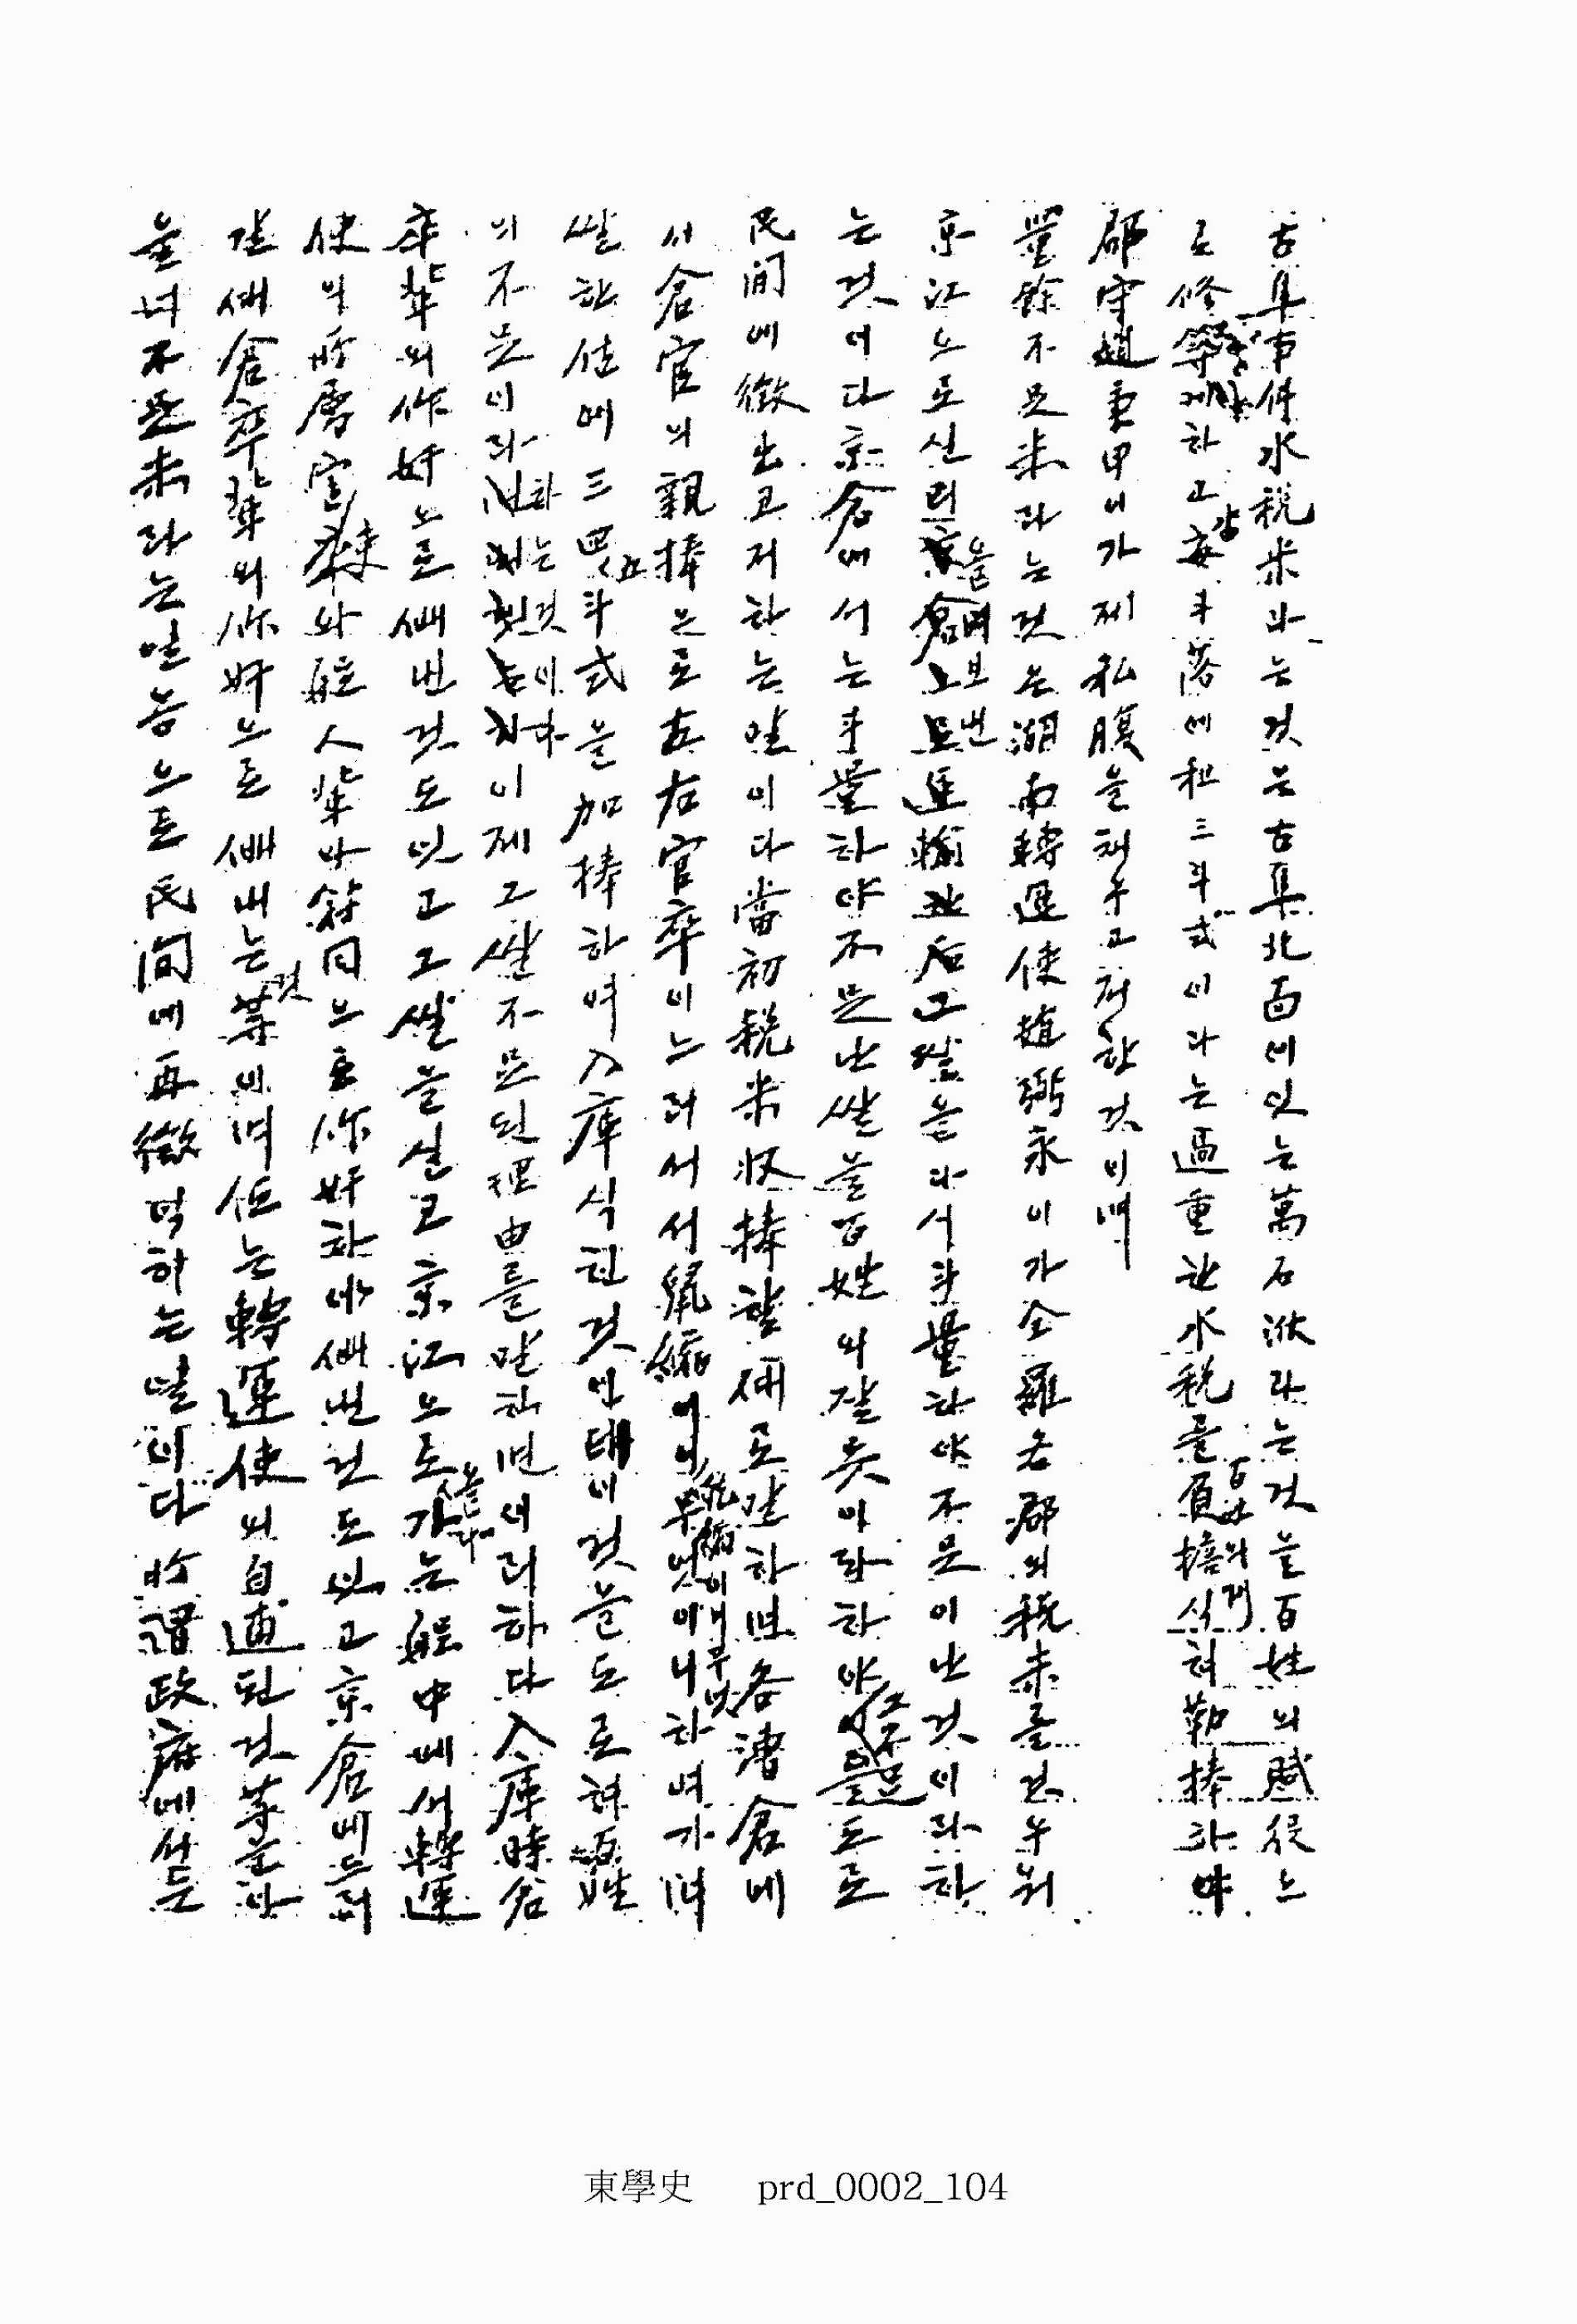 古阜事件水稅米라는것은古阜北面에잇는萬石洑라는것을百姓의賦役으
로修築케하고每斗落에租三斗式이라는過重한水稅를百姓의게負擔식혀勒捧하야
郡守趙秉甲이가제私腹을채우고저한것이며
量餘不足米라는것은湖南轉運使趙弼永이가全羅各郡의稅米를것우워
京江으로실러京倉을運輸한后그쌀을다시斗量하야不足이난것이라하
는것이다京倉에서는斗量하야不足난쌀을百姓의잘못이라하야不足을도로
民間에徵出코저하는말이다當初稅米收捧할때로말하면各漕倉에
서倉官의親捧으로左右官卒이느러서서鼠縮이니무엇이니하여가며
쌀한섬에三四五斗式을加捧하여入庫식힌것인대이것을도로혀百姓
의不足이라하는것이다이제그쌀不足된理由를말하면이러하다入庫時倉
卒輩의作奸으로偸낸것도잇고그쌀을실고京江으로올나가는船中에서轉運
使의所屬官隷와船人輩가符同으로作奸하야偸낸것도잇고京倉에드러
갈새倉卒輩의作奸으로偸내는것이며또는轉運使의自逋된것等을가
늘너不足米라는일홈으로民間에再徵억하는말이다所謂政府에서는